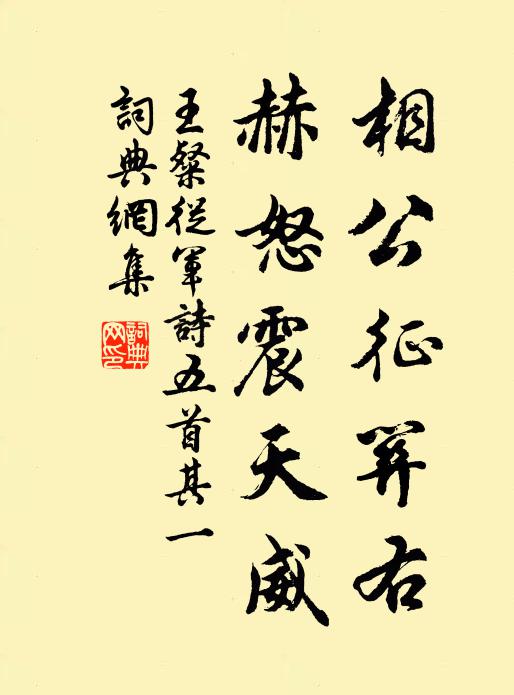 相公征關右
赫怒震天威
王粲從軍詩五首其一
詞典網集
詞典网印